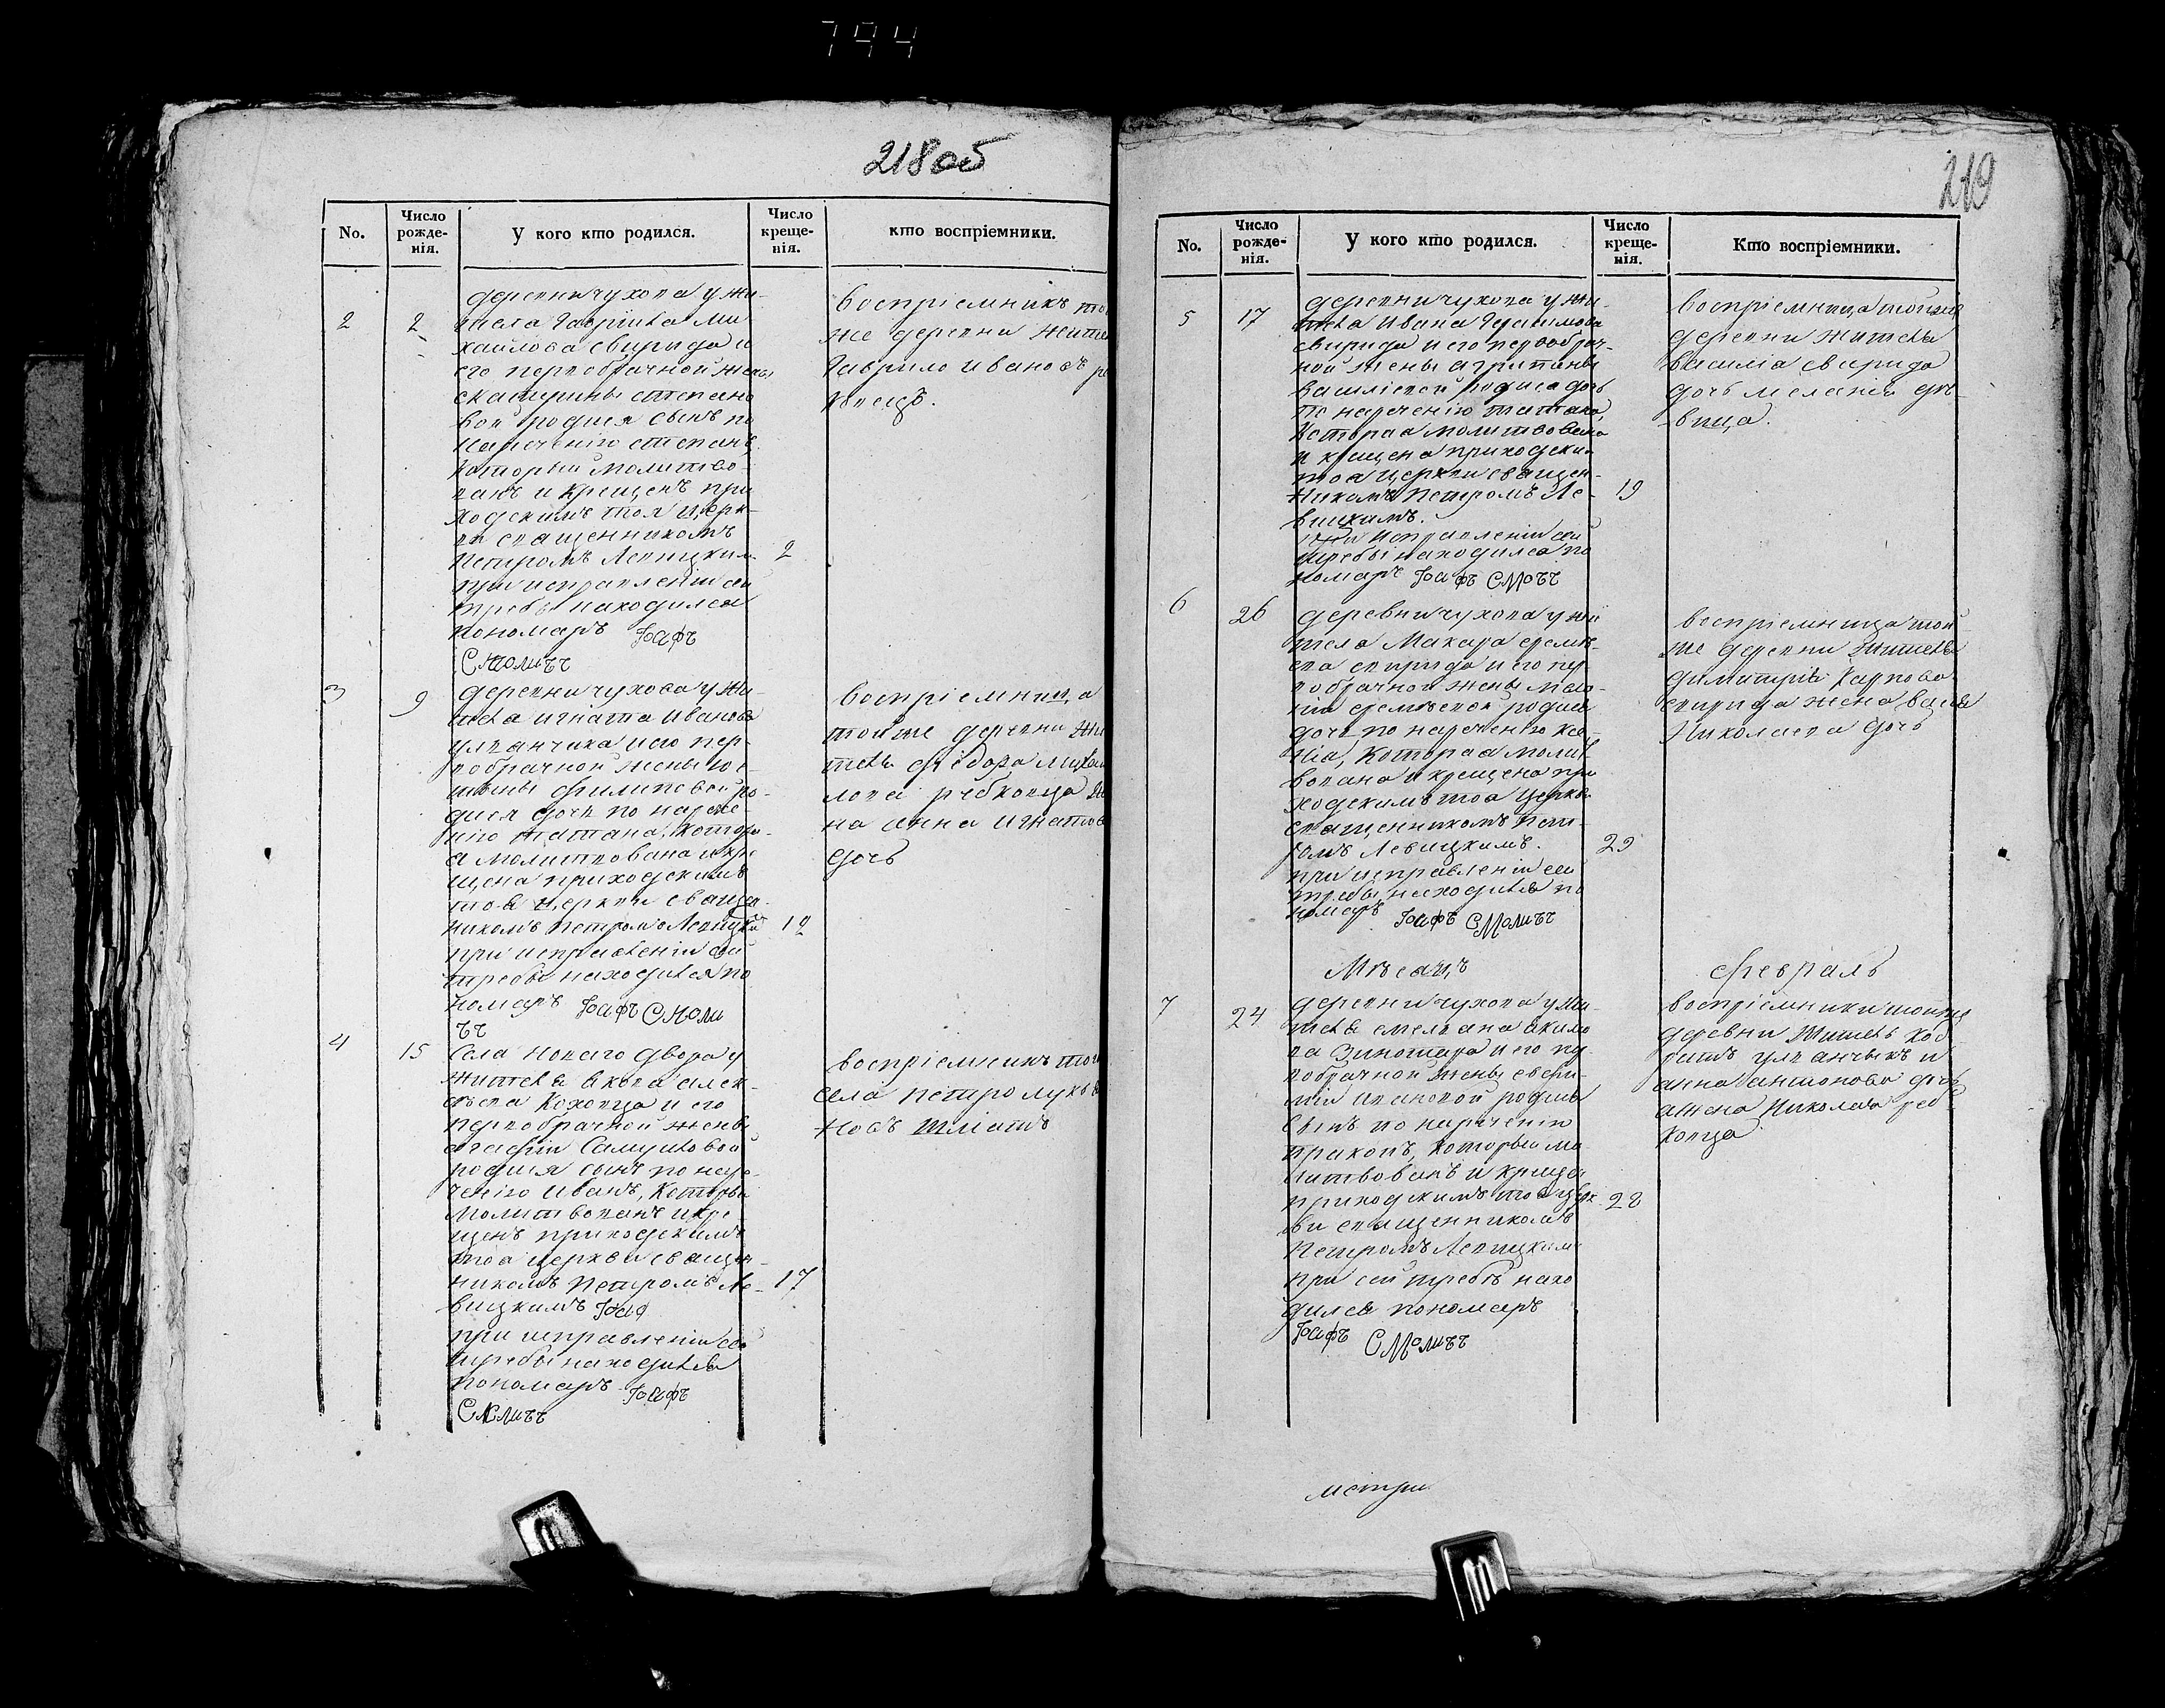 794
218об
No.
Число рожде- нія.
У кого кто родился.
Число креще- нія.
кто воспріемники.
2
2
деревни чухова у жи-
теля Гаврила ми
хайлова свирида и
его первобрачной жены
екатерины степано
вой родися сынъ по
наречению степанъ,
который молитво-
ванъ и крещенъ при
ходскимъ тоя церк-
ви священникомъ
Петромъ Левицким
при исправленіи сей
требы находился
пономаръ
2
воспріемникъ той
же деревни жител
Гаврило ивановъ
3
9
деревни чухова у жи-
теля игната иванова
улванчика и его пер-
вобрачной жены
филиповой ро-
дися дочь по нарече
нію татіана, котора-
а молитвована и кре
щена приходскимъ
тоя церкви священ
никомъ Петромъ Левицкй
при исправленіи сей
требы находился по
номаръ
12
воспріемница
той же деревни жи
теля федора михай
лова рябковца же
на анна игнатова
дочь
4
15
Села новаго двора у
жителя якова алек-
сѣева коховца и его
первобрачной жены
агафіи Самуиловой
родися сынъ по наре-
ченію иванъ, которы
молитвованъ и кре
щенъ приходскимъ
тоя церкви священ-
никомъ Петромъ Ле-
вицкимъ
при исправленіи сей
требы находился
пономаръ
17
воспріемникъ той
села петро лукья
новъ
219
No.
Число рожде- нія.
У кого кто родился.
Число креще- нія.
Кто воспріемники.
5
17
деревни чухова у жи-
теля ивана Герасимова
свирида и его первобрач-
ной жены агрипины
василіевой родися дочь
по нареченію татіана,
которая молитвована
и крещена приходским
тоя церкви священ-
никомъ Петромъ Ле-
вицкимъ.
При исправленіи сей
требы находился по
номаръ
19
воспріемница той же
деревни жителя
василіа свирида
дочь меланія дѣ-
вица.
6
26
деревни чухова у жи
теля Макара еремѣ-
ева свирида и его пер
вобрачной жены
родися
дочь по нареченію ксе-
нія, которая молит
вована и крещена при
ходскимъ тоя церкви
священникомъ Пет-
ромъ Левицкимъ.
при исправленіи сей
требы находился по
номаръ
29
воспріемница той
же деревни жителя
димитрія Карпова
свирида жена
николаева дочь
Мѣсяцъ
февраль
7
24
деревни чухова у жи-
теля емеляна акимо
ва Зинотара и его пе
вобрачной жены евфи-
міи ивановой родися
сынъ по нареченію
прокопъ, который мо
литвованъ и крещен
приходскимъ тоя церк-
ви священникомъ
Петромъ Левицким
при сей требѣ нахо
дился пономаръ
28
воспріемники той же
деревни житель
улванчикъ и
анна антонова дочь
а жена николая реб
ковца
метри